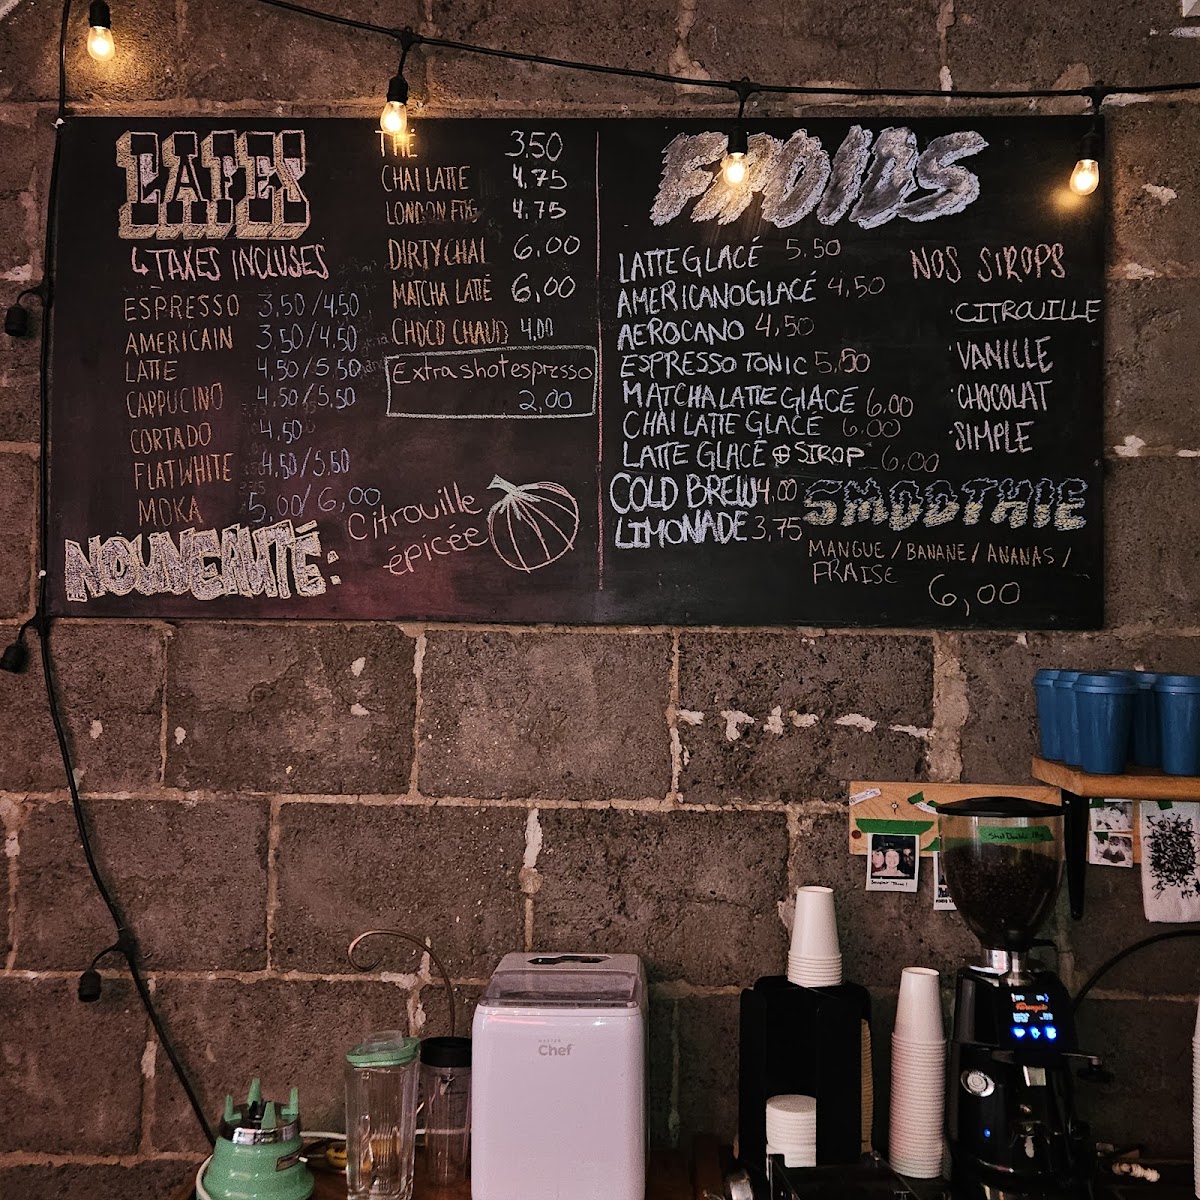 CAFES
↳ TAXES INCLUSES
ESPRESSO 3,50/4,50
AMERICAIN 3,50/4,50
LATTE 4,50/5,50
CAPPUCINO 4,50/5,50
CORTADO 4,50
FLATWHITE 4,50/5,50
MOKA 5,00/6,00
NOUVEAUTÉ:
Citrouille
épicée
THÉ 3.50
CHAI LATTE 4.75
LONDON FOG 4.75
DIRTY CHAI 6,00
MATCHA LATTE 6,00
CHOCO CHAUD 4,00
Extra shot espresso
2,00
FROIDS
LATTE GLACÉ 5,50
AMERICANO GLACÉ 4,50
AEROCANO 4,50
ESPRESSO TONIC 5,50
MATCHA LATTE GLACÉ 6,00
CHAI LATTE GLACÉ 6,00
LATTE GLACÉ + SIROP 6,00
COLD BREW 4,00
LIMONADE 3,75
NOS SIROPS
·CITROUILLE
·VANILLE
·CHOCOLAT
·SIMPLE
SMOOTHIE
MANGUE / BANANE / ANANAS /
FRAISE
6,00
MASTER
Chef